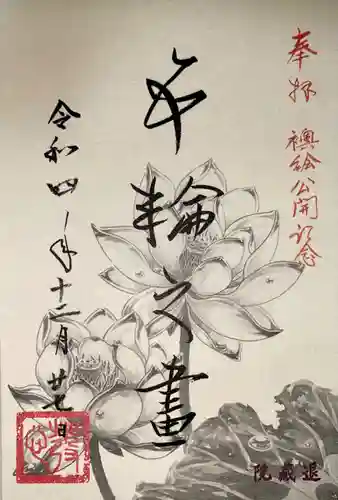 奉拝
襖絵公開記念
輪 畫
令和四年十二月廿七日
退藏院